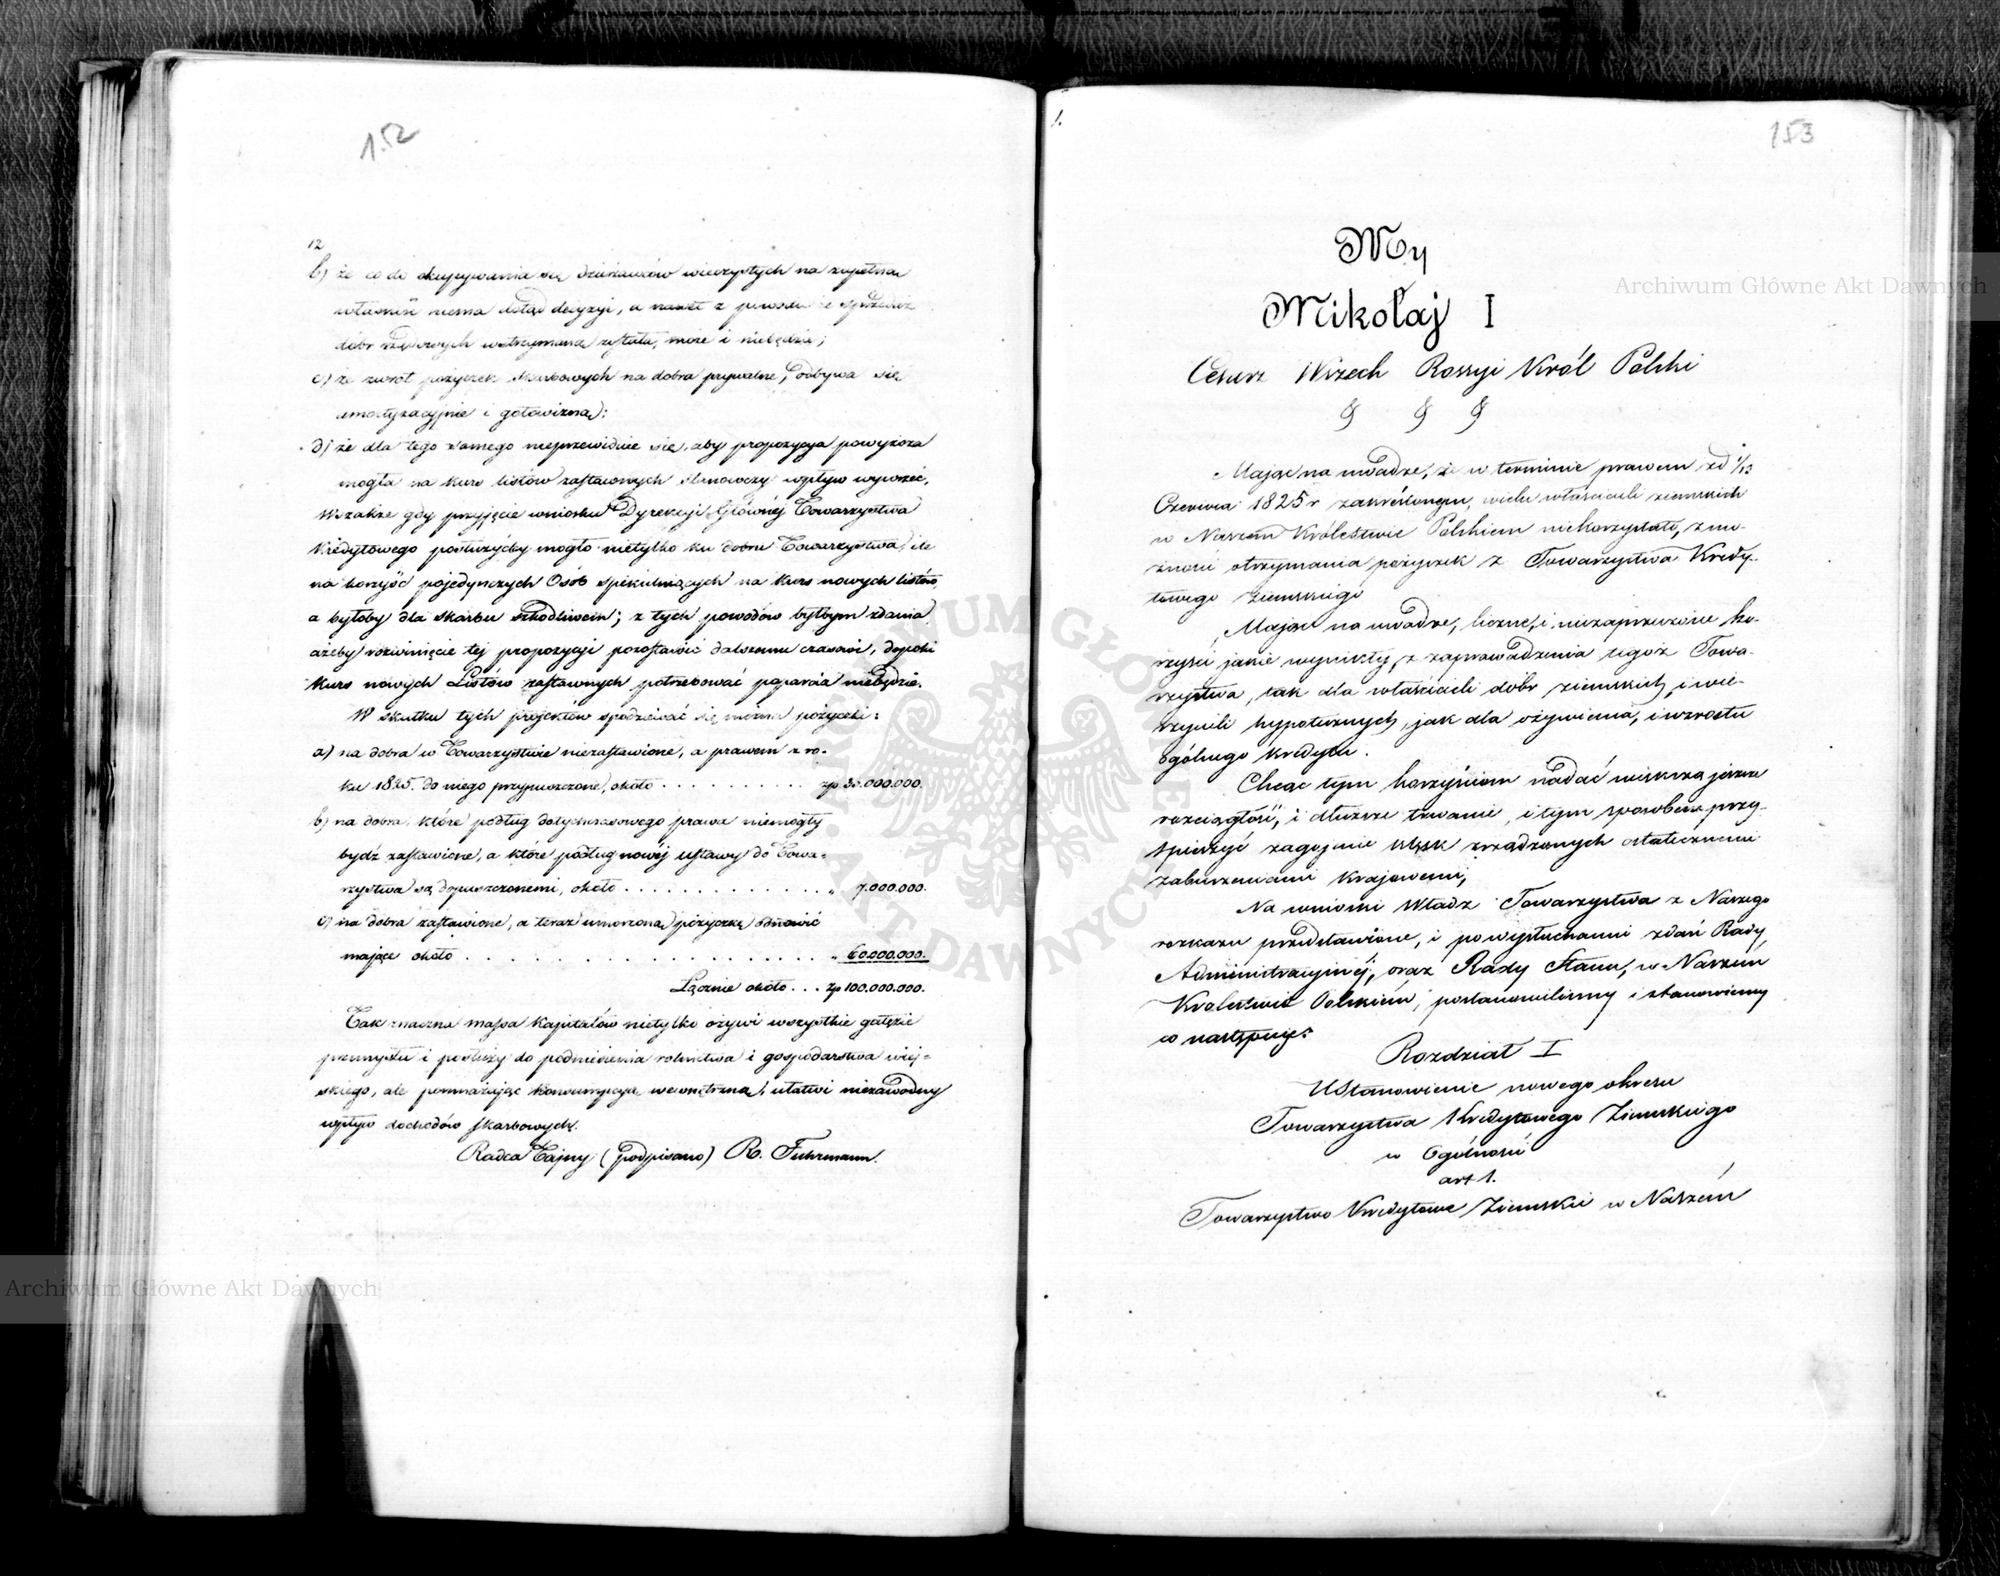 152
12
b) że co do okupywania się dzierżawców wieczystych na zupełną
własność niema dotąd decyzyi, a nawet z powodu że sprzedaż
dóbr rządowych wstrzymaną została, może i niebędzie;
c) że zwrot pożyczek skarbowych na dobra prywatne, odbywa się
amortyzacyjnie i gotowizną;
d) że dla tego samego nieprzewiduie się, aby propozycya powyższa
mogła na kurs listów zastawnych stanowczy wpływ wywrzeć,
Wszakże gdy przyjęcie wniosku Dyrekcyi Głównéj Towarzystwa
Kredytowego posłużyćby mogło nietylko ku dobru Towarzystwa, ile
na korzyść pojedynczych Osób spekulujących na kurs nowych listów,
a byłoby dla Skarbu szkodliwem; z tych powodów byłbym zdania,
ażeby rozwinięcie téj propozycyi pozostawić dalszemu czasowi, dopóki
Kurs nowych Listów zastawnych potrzebować poparcia niebędzie.
W skutku tych projektów spodziewać się można pożyczki:
a) na dobra w Towarzystwie niezastawione, a prawem z ro-
ku 1825. do niego przypuszczone, około . . . . . . . . . . zp 33.000.000.
b) na dobra, które podług dotychczasowego prawa niemogły
bydź zastawione, a które podług nowéj ustawy do Towa-
rzystwa są dopuszczonemi, około . . . . . . . . . . . . . . " 7.000.000.
c) na dobra zastawione, a teraz umorzoną pożyczkę odnowić
mające około . . . . . . . . . . . . . . . . . . . " 60.000.000.
Łącznie około . . . zp 100.000.000.
Tak znaczna massa Kapitałów nietylko ożywi wszystkie gałęzie
przemysłu i posłuży do podniesienia rolnictwa i gospodarstwa wiej-
skiego, ale pomnażając konsumpcyą wewnętrzną, ułatwi niezawodny
wpływ dochodów skarbowych.
Radca Tajny (podpisano) R. Fuhrmann.
1.
153
My
Mikołaj I
Cesarz Wszech Rossyi Król Polski
& & &
Mając na uwadze, że w terminie prawem zd 1/13
Czerwca 1825 r zakreślonym, wielu właścicieli ziemskich
w Naszém Królestwie Polskiem niekorzystało, z mo-
żności otrzymania pożyczek z Towarzystwa Kredy-
towego Ziemskiego
Mając na uwadze, liczne, i niezaprzeczone ko-
rzyści jakie wynikły, z zaprowadzenia tegoż Towa-
rzystwa, tak dla właścicieli dóbr ziemskich, i wie-
rzycieli hypotecznych, jak dla ożywienia, i wzrostu
ogólnego kredytu.
Chcąc tym korzyściom nadać większą jeszcze
rozciągłość, i dłuższe trwanie, i tym sposobem przy-
spieszyć zagojenie klęsk zrządzonych ostatecznemi
zaburzeniami Krajowemi,
Na wnioski Władz Towarzystwa z Naszego
rozkazu przedstawione, i po wysłuchaniu zdań Rady
Administracyjnéj, oraz Rady Stanu, w Naszém
Królestwie Polskiém, postanowiliśmy i stanowiemy
co następuje:
Rozdział I
Ustanowienie nowego okresu
Towarzystwa Kredytowego Ziemskiego
w Ogólności
art 1.
Towarzystwo Kredytowe Ziemskie w Naszém
Archiwum Główne Akt Dawnych
Archiwum Główne Akt Dawnych
ARCHIWUM GŁÓWNE AKT DAWNYCH